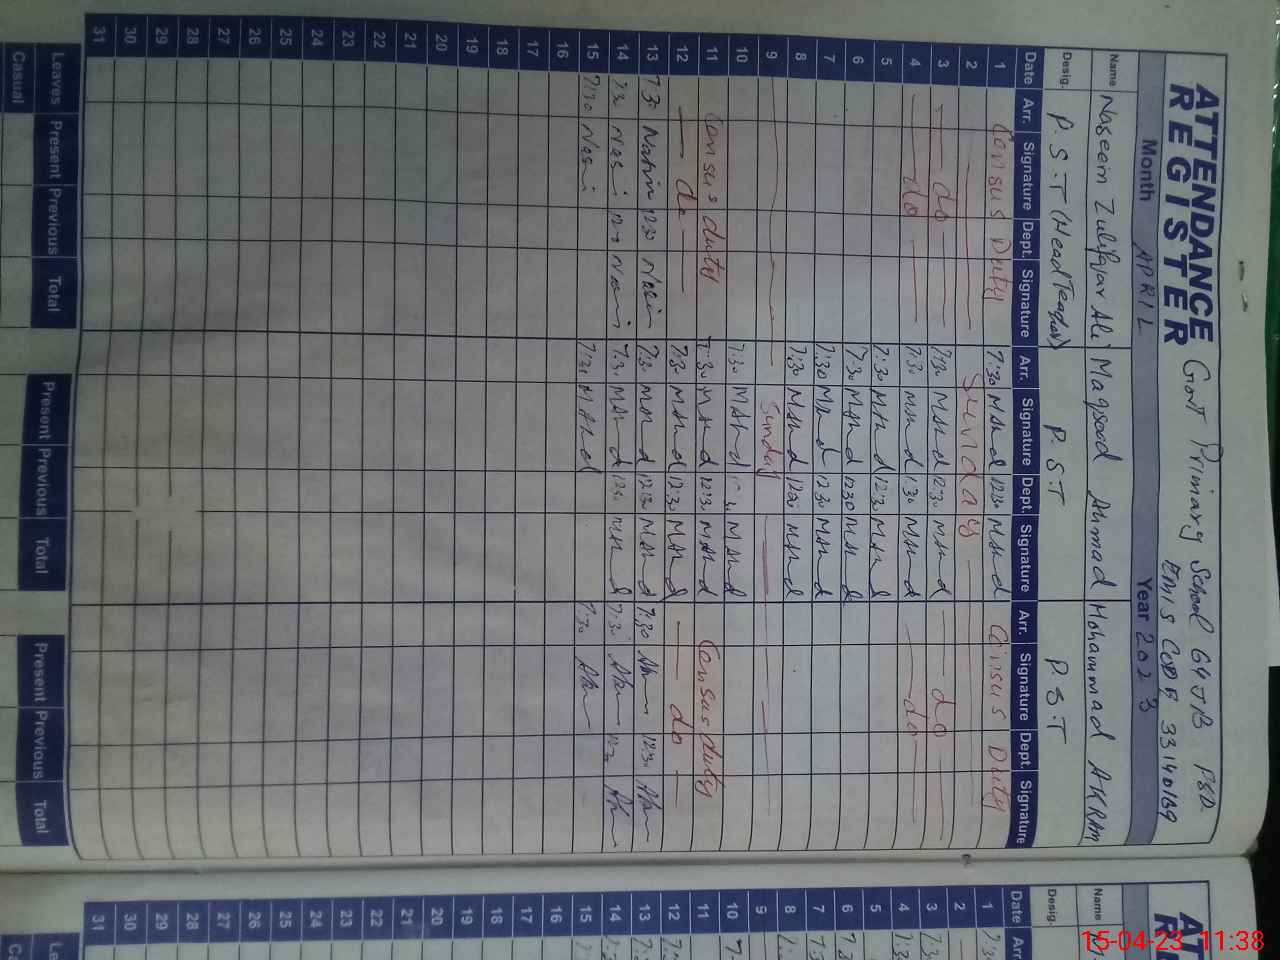 ATTENDANCE REGISTER
Govt Primary School 64 JB FSD
EMIS CODE 33140169
Month APRIL Year 2023
Name Naseem Zulifqar Ali Maqsood Ahmad Mohammad AKRAM
Desig. P.S.T (Head Teacher) P.S.T P.S.T
Date Arr. Signature Dept. Signature Arr. Signature Dept. Signature Arr. Signature Dept. Signature
1 Consus Duty 7:30 MAhd 12:30 MAhd Cinsus Duty
2 Sunday
3 do 7:30 MAhd 12:30 MAhd do
4 do 7:30 MAhd 1:30 MAhd do
5 7:30 MAhd 12:30 MAhd
6 7:30 MAhd 12:30 MAhd
7 7:30 MAhd 12:30 MAhd
8 7:30 MAhd 12:30 MAhd
9 Sunday
10 7:30 MAhd MAhd
11 Consus duty 7:30 MAhd 12:30 MAhd Consus duty
12 do 7:30 MAhd 12:30 MAhd do
13 7:30 12:30 7:30 MAhd 12:30 MAhd 7:30 12:30
14 7:30 7:30 MAhd 12:30 MAhd 7:30
15 7:30 7:30 MAhd 7:30
16
17
18
19
20
21
22
23
24
25
26
27
28
29
30
31
Leaves Present Previous Total Present Previous Total Present Previous Total
Casual
ATT
R
Name
Desig.
Date Arr
1 7:30
2
3
4 7:30
5
6 7:30
7
8
9
10
11
12
13
14
15
16
17
18
19
20
21
22
23
24
25
26
27
28
29
30
31
Le
Ca
15-04-23 11:38